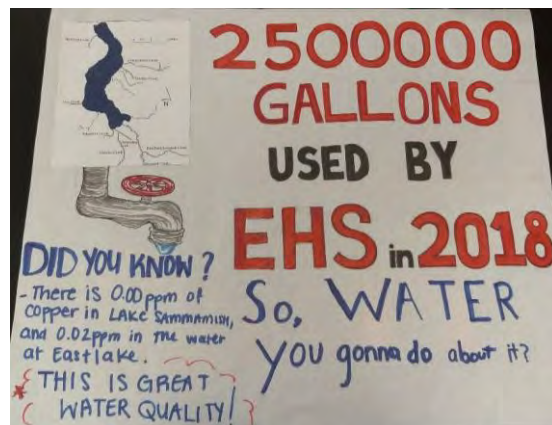 2500000
GALLONS
USED BY
EHS in 2018
So, WATER
you gonna do about it?
DID YOU KNOW?
- There is 0.00 ppm of
copper in LAKE SAMMAMISH,
and 0.02ppm in the water
at Eastlake.
* THIS IS GREAT
WATER QUALITY!
N